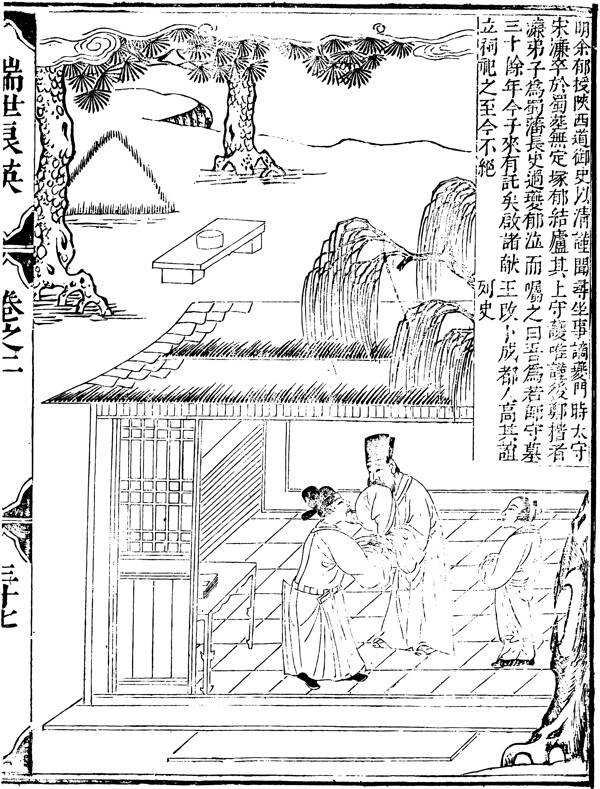 明余郁授陝西道御史以清謹聞尋坐事謫夔門時太守
宋濂卒於蜀塟無定塚郁結廬其上守護唯謹後鄭楷者
濂弟子為蜀藩長史過夔郁泣而囑之曰吾為若師守墓
三十餘年今子來有託矣啟諸献王改卜成都人高其誼
立祠祀之至今不絕　列史
瑞世良英
卷之二
三十七